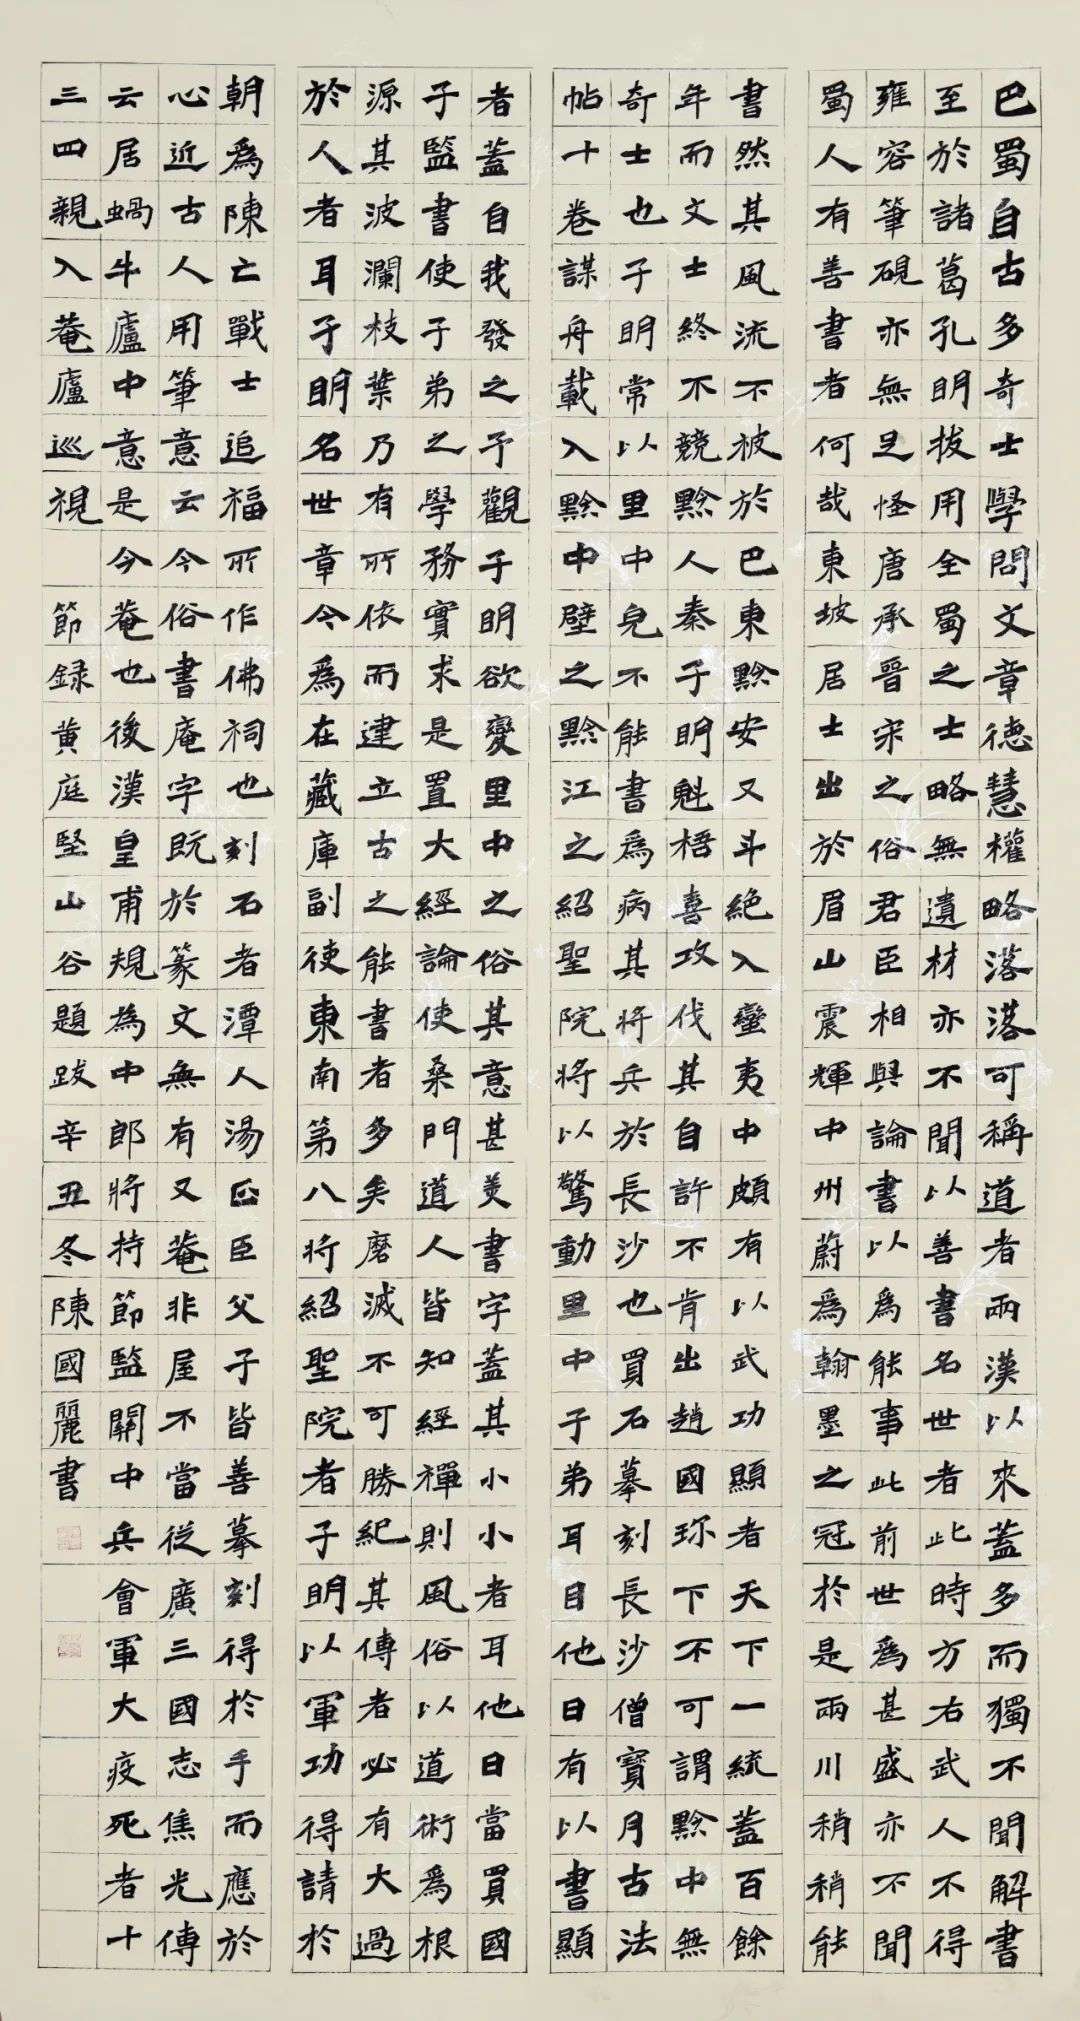 巴蜀自古多奇士學問文章德慧權略落落可稱道者兩漢以來蓋多而獨不聞解書
至於諸葛孔明拔用全蜀之士略無遺材亦不聞以善書名世者此時方右武人不得
雍容筆硯亦無足怪唐承晉宋之俗君臣相與論書以爲能事此前世爲甚盛亦不聞
蜀人有善書者何哉東坡居士出於眉山震輝中州蔚爲翰墨之冠於是兩川稍稍能
書然其風流不被於巴東黔安又斗絶入蠻夷中頗有以武功顯者天下一統蓋百餘
年而文士終不競黔人秦子明魁梧喜攻伐其自許不肯出趙國珎下不可謂黔中無
奇士也子明常以里中兒不能書爲病其將兵於長沙也買石摹刻長沙僧寶月古法
帖十卷謀舟載入黔中壁之黔江之紹聖院將以驚動里中子弟耳目他日有以書顯
者蓋自我發之予觀子明欲變里中之俗其意甚美書字蓋其小小者耳他日當買國
子監書使子弟之學務實求是置大經論使桑門道人皆知經禪則風俗以道術爲根
源其波瀾枝葉乃有所依而建立古之能書者多矣磨滅不可勝紀其傳者必有大過
於人者耳子明名世章今爲在藏庫副使東南第八將紹聖院者子明以軍功得請於
朝爲陳亡戰士追福所作佛祠也刻石者潭人湯正臣父子皆善摹刻得於手而應於
心近古人用筆意云今俗書庵字既於篆文無有又菴非屋不當從廣三國志焦光傳
云居蝸牛廬中意是今菴也後漢皇甫規為中郎將持節監關中兵會軍大疫死者十
三四親入菴廬巡視 節録黄庭堅山谷題跋辛丑冬陳國麗書